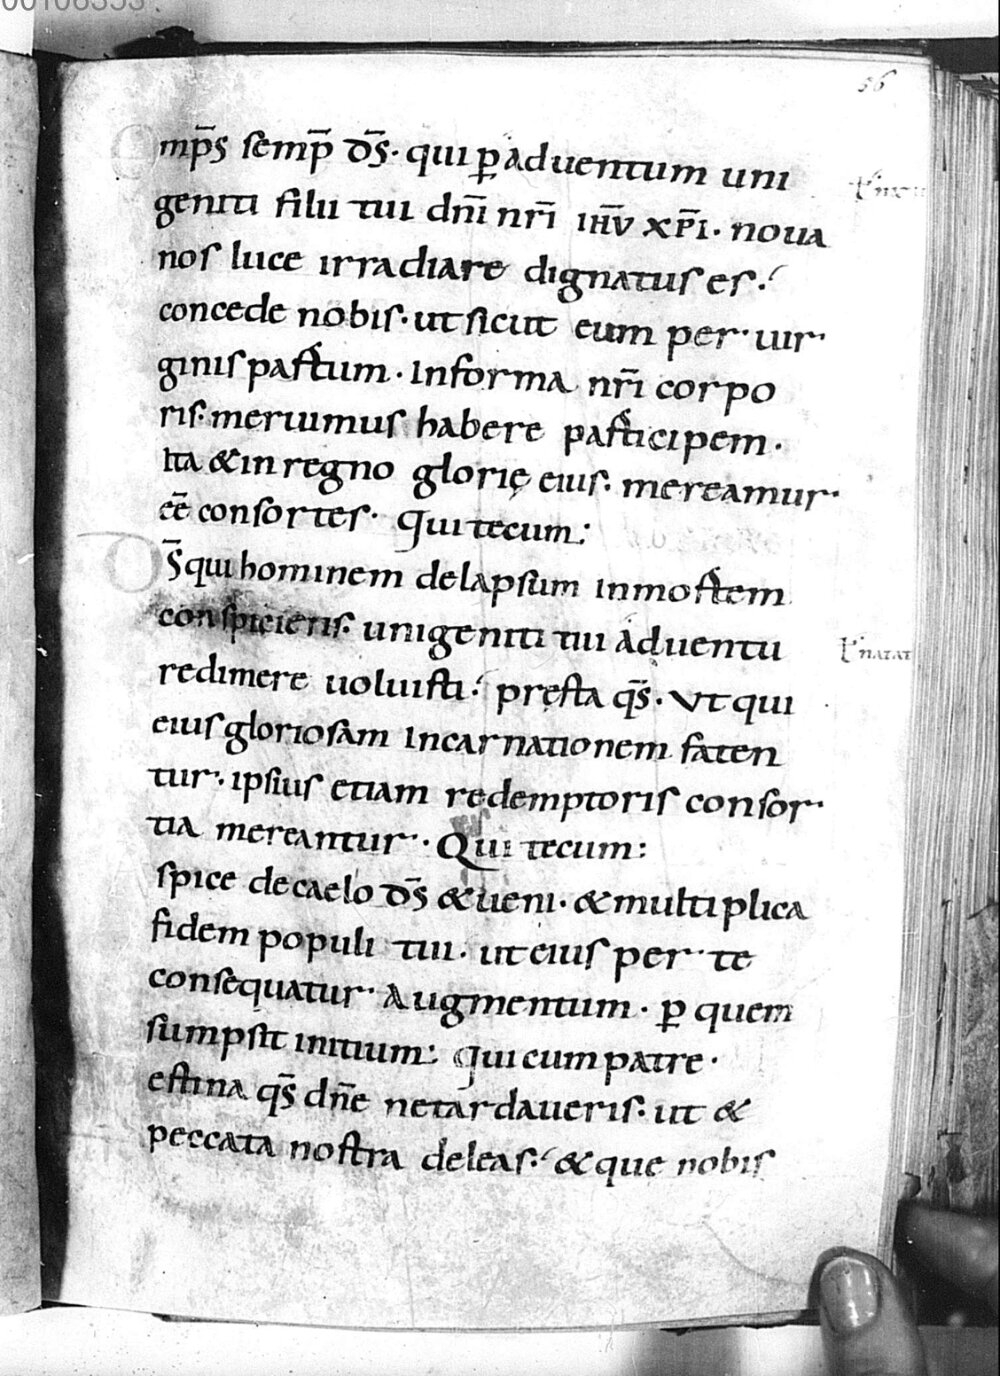 00108353
56
Omp̄s semp̄ d̄s. qui ꝑ aduentum uni
geniti filii tui dn̄i nr̄i ih̄u xp̄i. noua
nos luce irradiare dignatus es.
concede nobis. ut sicut eum per uir
ginis partum. In forma nr̄i corpo
ris. meruimus habere participem.
Ita & in regno glorię eius. mereamur
eē consortes. Qui tecum:
D̄s qui hominem delapsum in mortem
conspicieris. unigeniti tui aduentu
redimere uoluisti. pręsta qs̄. Ut qui
eius gloriosam Incarnationem faten
tur. ipsius etiam redemptoris consor
tia mereantur. Qui tecum:
spice de caelo d̄s & ueni. & multiplica
fidem populi tui. ut eius per te
consequatur Augmentum. ꝑ quem
sumpsit initium: Qui cum patre.
estina qs̄ dn̄e ne tardaueris. ut &
peccata nostra deleas. & que nobis